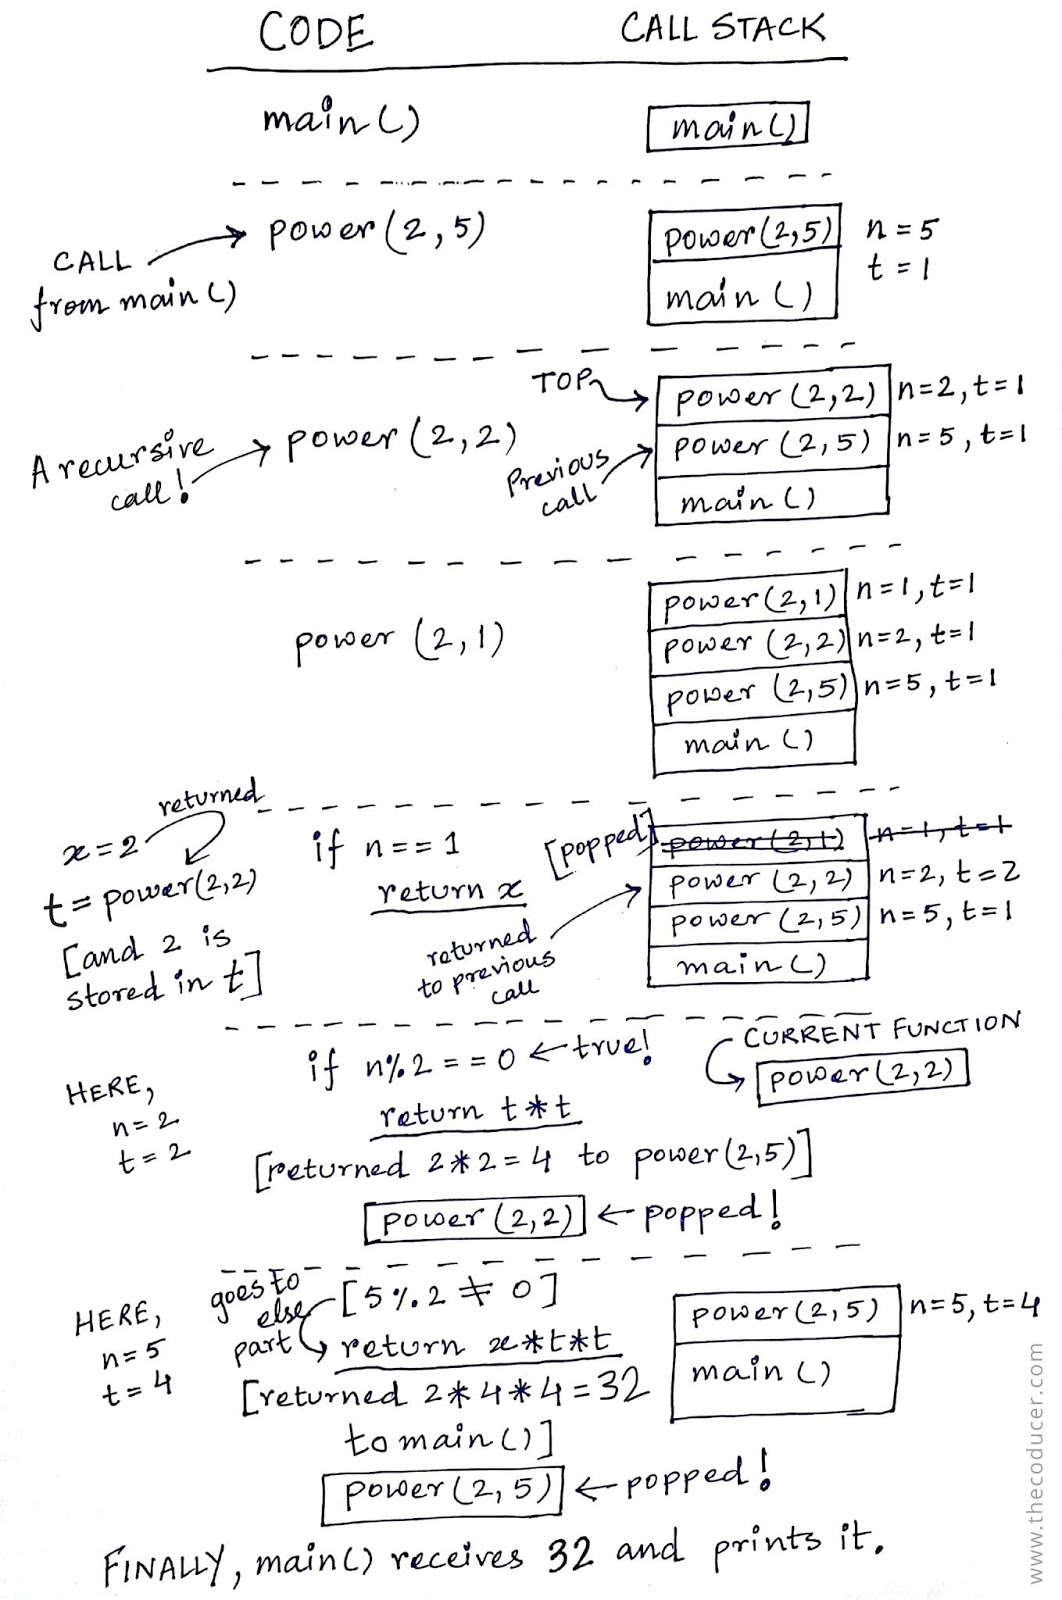 CODE CALL STACK
main() main()
CALL from main() power(2,5) power(2,5) n=5
main() t=1
A recursive call! power(2,2) TOP power(2,2) n=2,t=1
Previous call power(2,5) n=5,t=1
main()
power(2,1) power(2,1) n=1,t=1
power(2,2) n=2,t=1
power(2,5) n=5,t=1
main()
returned
x=2 if n==1 [popped] power(2,1) n=1,t=1
t=power(2,2) return x power(2,2) n=2,t=2
[and 2 is stored in t] returned to previous call power(2,5) n=5,t=1
main()
HERE, if n%2==0 ←true! CURRENT FUNCTION
n=2 power(2,2)
t=2 return t*t
[returned 2*2=4 to power(2,5)]
power(2,2) ←popped!
HERE, goes to else part [5%2≠0] power(2,5) n=5,t=4
n=5 return x*t*t main()
t=4 [returned 2*4*4=32
to main()]
power(2,5) ←popped!
FINALLY, main() receives 32 and prints it.
www.thecoducer.com